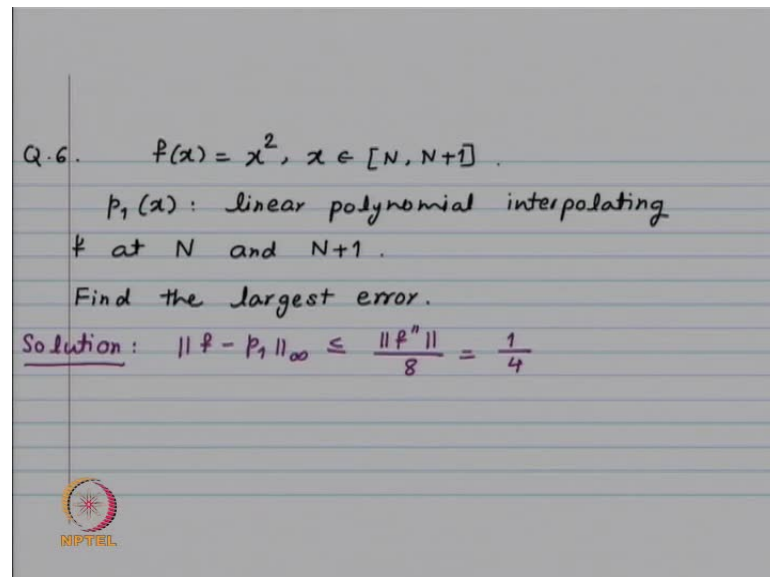 Q.6. f(x) = x², x ∈ [N, N+1].
p₁(x): linear polynomial interpolating
f at N and N+1.
Find the largest error.
Solution: ||f - p₁||∞ ≤ ||f"||/8 = 1/4
NPTEL